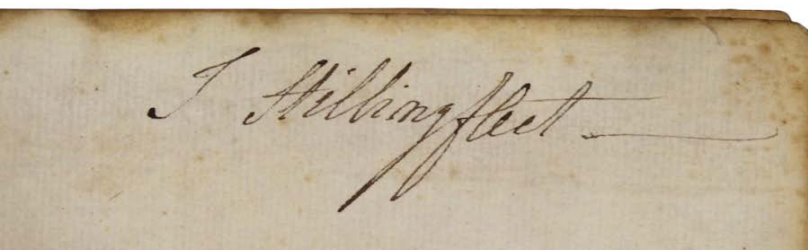 J Stillingfleet